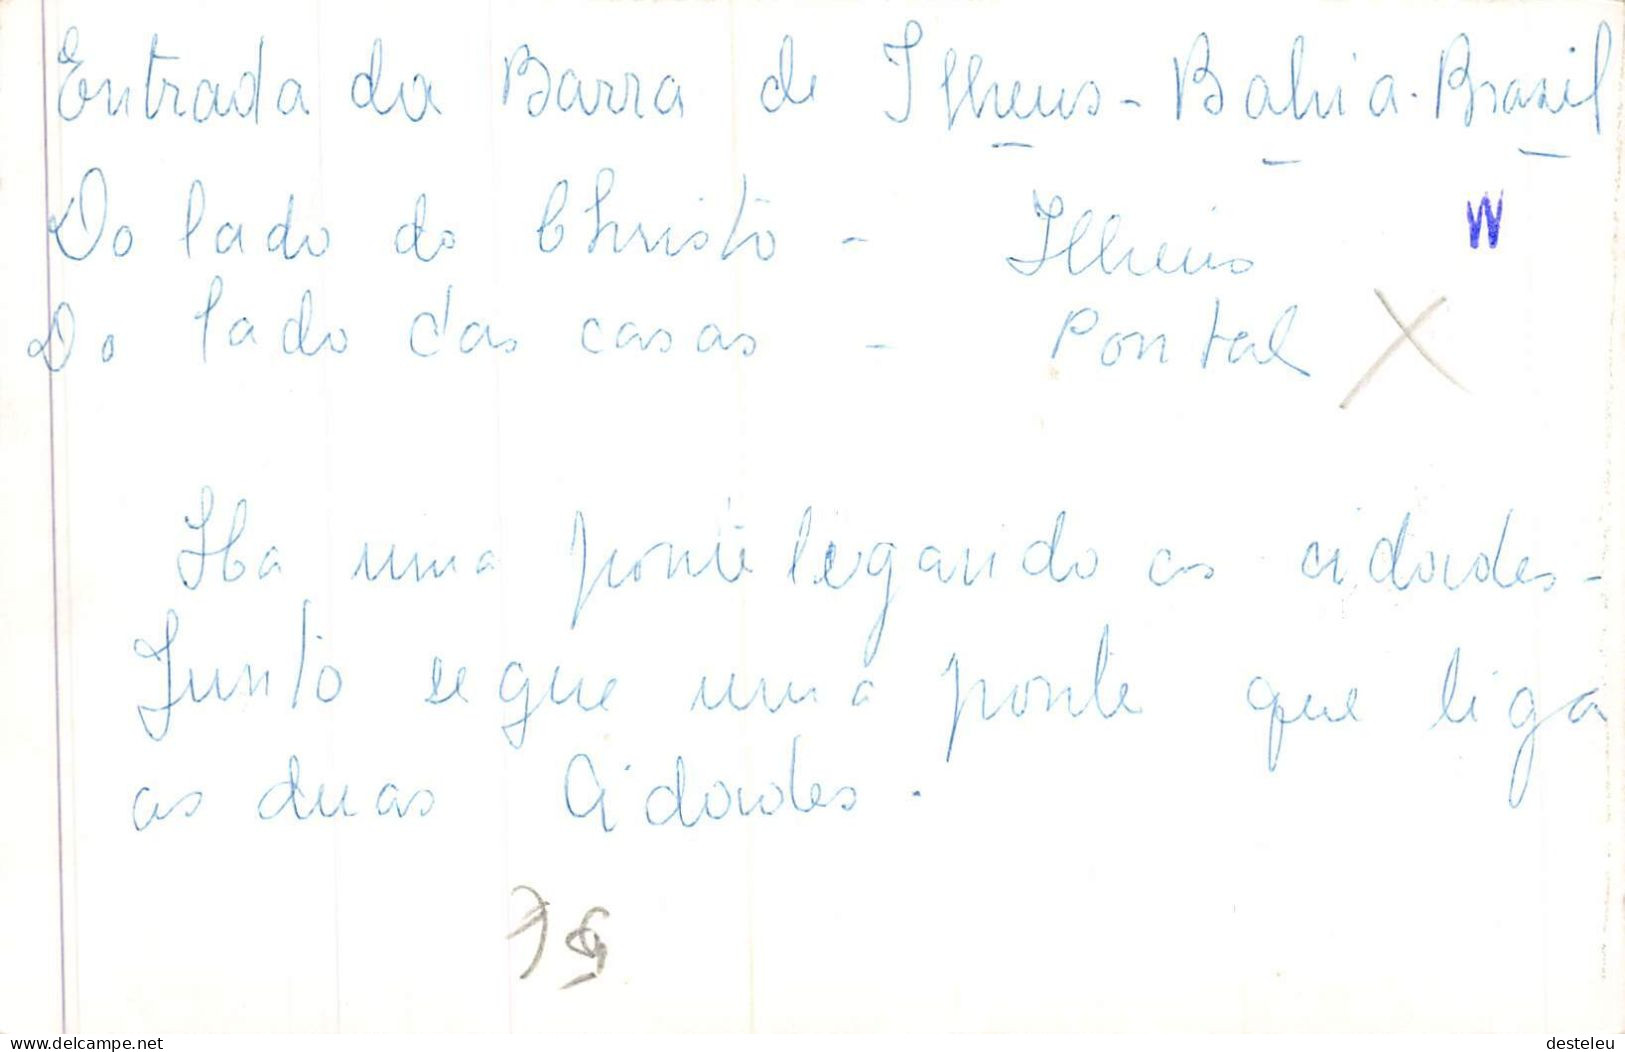 Entrada da Barra de Ilheus - Bahia. Brasil
Do lado do Christo - Ilheus
W
Do lado das casas - Pontal X
Ha uma ponte ligando as cidades -
Junto segue uma ponte que liga
as duas Cidades.
www.delcampe.net
desteleu